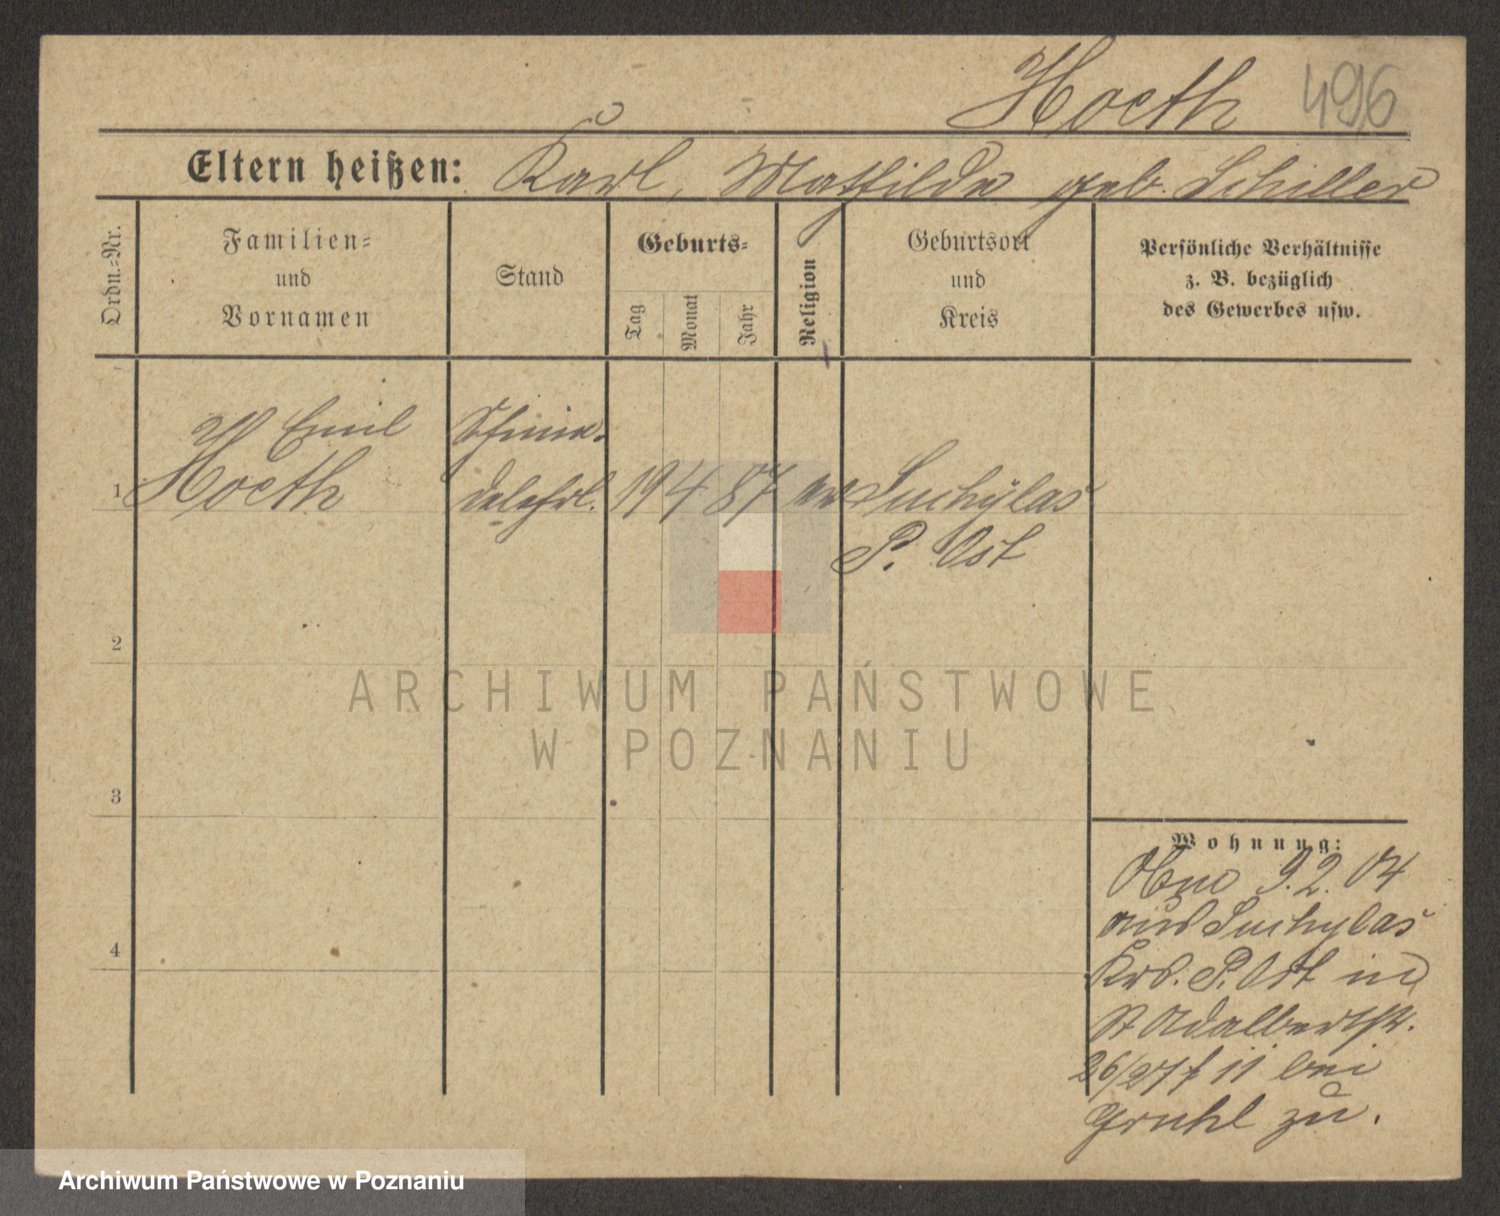 Hoeth 496
Eltern heißen: Karl, Mathilde geb. Schiller
Ordn.=Nr.
Familien=
und
Vornamen
Stand
Geburts=
Tag
Monat
Jahr
Religion
Geburtsort
und
Kreis
Persönliche Verhältnisse
z. B. bezüglich
des Gewerbes usw.
Emil
1 Hoeth 19 4 87 ev Suchylas
P. Ost
2
ARCHIWUM PAŃSTWOWE
W POZNANIU
3
Wohnung:
9.2.04
aus Suchylas
Krs. P. Ost in
St Adalbertstr.
26/27 f 11 bei
Gruhl zu.
4
Archiwum Państwowe w Poznaniu